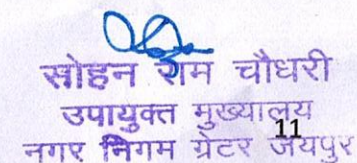 सोहन राम चौधरी
उपायुक्त मुख्यालय
नगर निगम ग्रेटर जयपुर
11